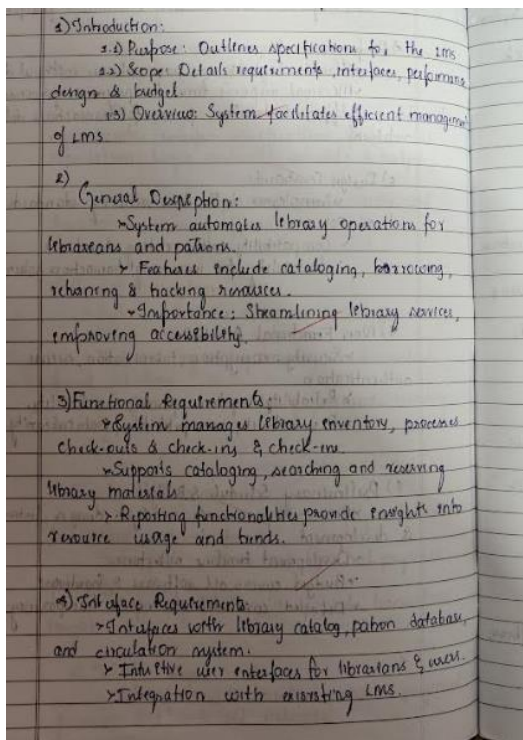 1) Introduction:
1.1) Purpose: Outlines specifications for the LMS
1.2) Scope: Details requirements, interfaces, performance
design & budget.
1.3) Overview: System facilitates efficient management
of LMS
2)
General Description:
→System automates library operations for
librareans and patrons.
→ Features include cataloging, borrowing,
returning & tracking resources.
→Importance: Streamlining library services,
improving accessibility.
3)Functional Requirements:
→System manages library inventory, processes
check-outs & check-ins & check-ins.
→Supports cataloging, searching and reserving
library materials
→ Reporting functionalities provide insights into
resource usage and trends.
4) Interface Requirements:
→Interfaces with library catalog, patron database,
and circulation system.
→ Intuitive user interfaces for librarians & users.
→Integration with existing LMS.